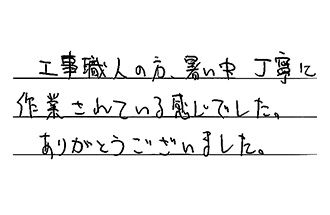 工事職人の方、暑い中 丁寧に
作業されている感じでした。
ありがとうございました。